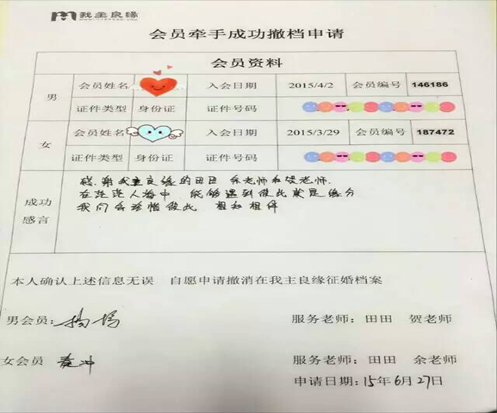 我主良缘
会员牵手成功撤档申请
会员资料
男 会员姓名 入会日期 2015/4/2 会员编号 146186
证件类型 身份证 证件号码
女 会员姓名 入会日期 2015/3/29 会员编号 187472
证件类型 身份证 证件号码
成功感言
感谢我主良缘的田田 余老师和贺老师.
在茫茫人海中 能够遇到彼此就是缘分
我们会珍惜彼此 相知相伴
本人确认上述信息无误 自愿申请撤消在我主良缘征婚档案
男会员: 服务老师: 田田 贺老师
女会员 服务老师: 田田 余老师
申请日期: 15年6月27日